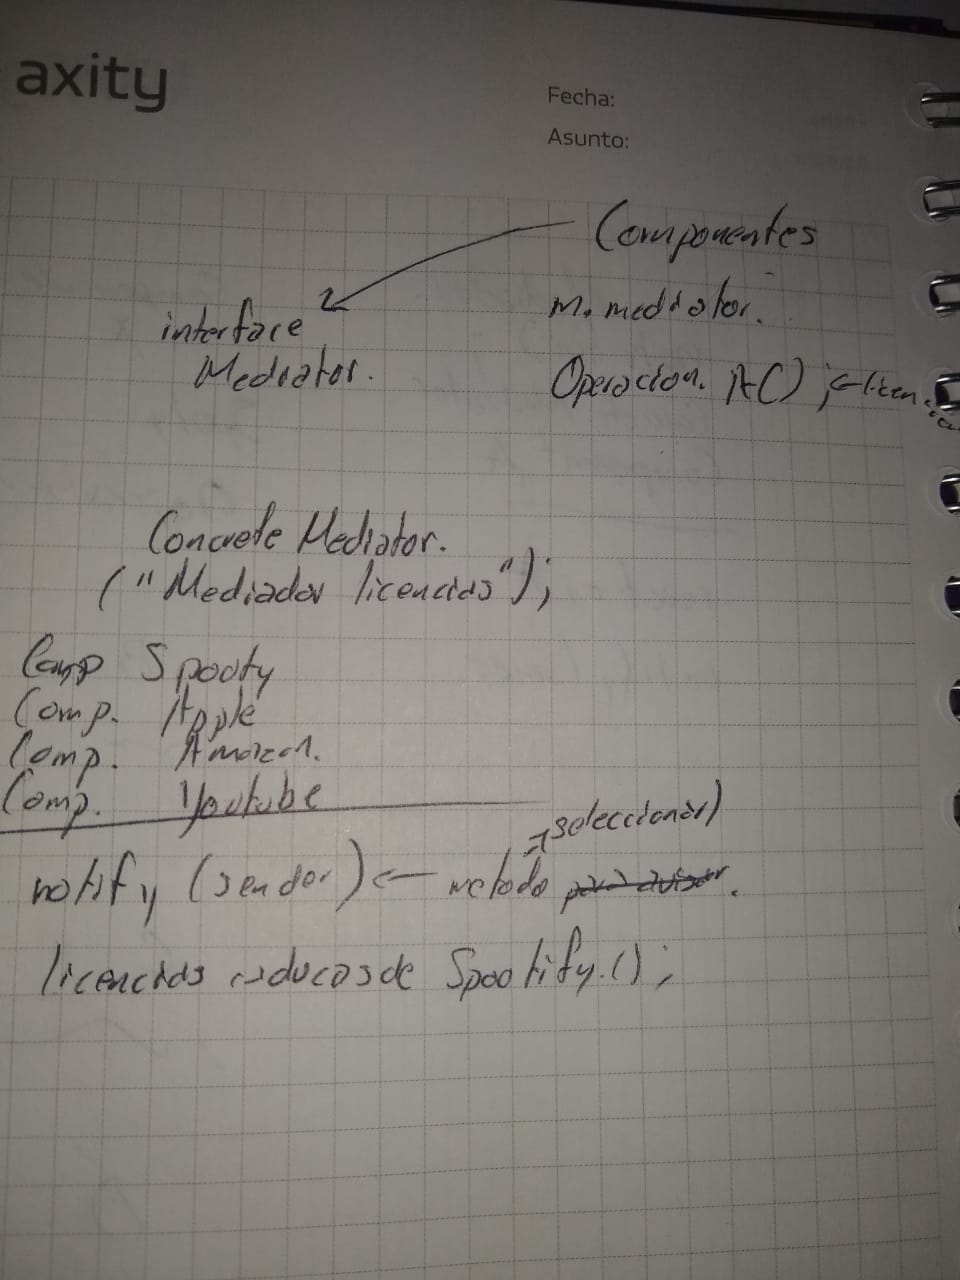 axity
Fecha:
Asunto:
Componentes
m. mediator.
Operacion. A() ; ← licen..
interface
Mediator.
Concrete Mediator.
("Mediador licencias");
Comp Spooty
Comp. Apple
Comp. Amazon.
Comp. Youtube
→ seleccionar)
notify (sender) ← metodo para avisar.
licencias caducas de Spootify.();